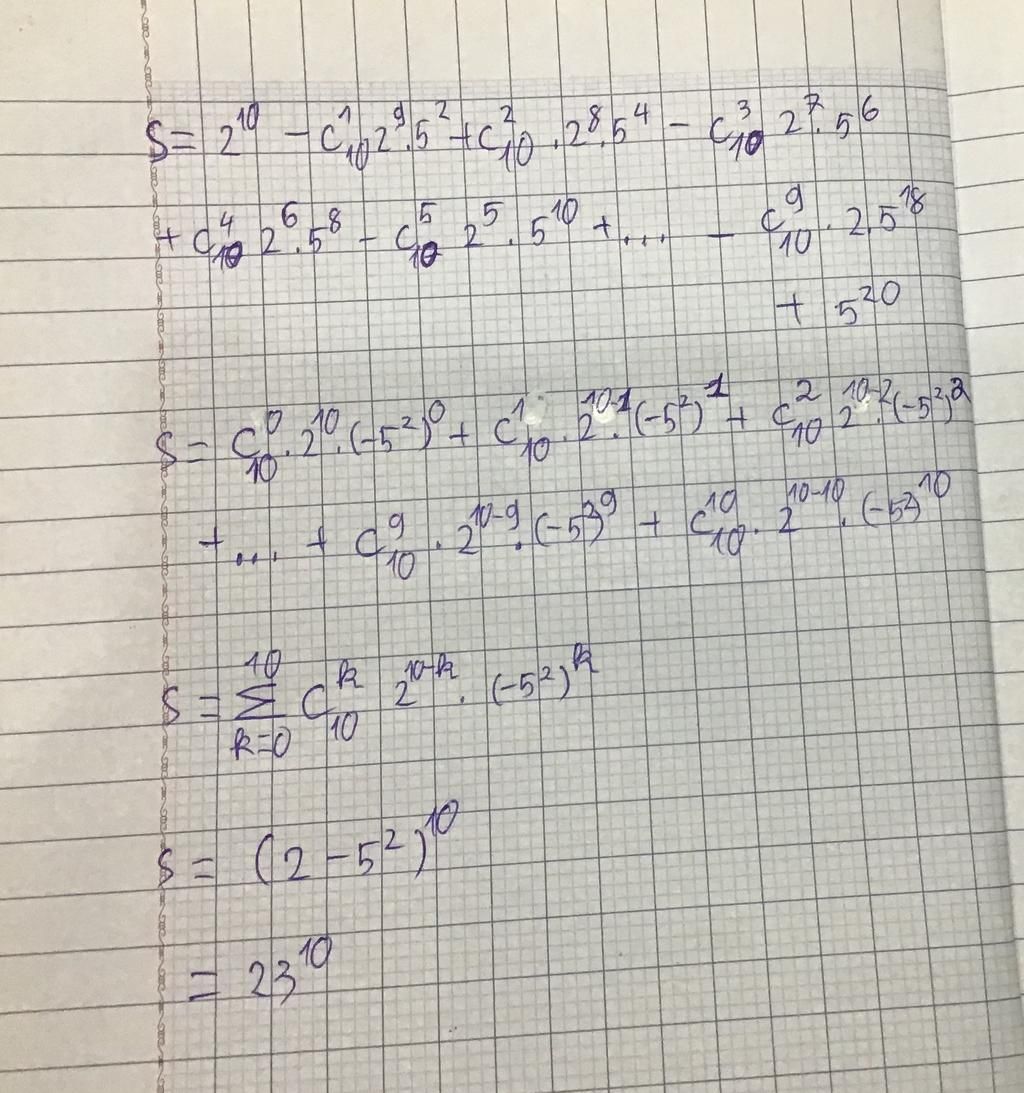 S = 2^10 - C_10^1 2^9 . 5^2 + C_10^2 . 2^8 . 5^4 - C_10^3 2^7 . 5^6
+ C_10^4 2^6 . 5^8 - C_10^5 2^5 . 5^10 + .... - C_10^9 . 2 . 5^18
+ 5^20
S = C_10^0 . 2^10 . (-5^2)^0 + C_10^1 . 2^(10-1) . (-5^2)^1 + C_10^2 2^(10-2) . (-5^2)^2
+ .... + C_10^9 . 2^(10-9) . (-5^2)^9 + C_10^10 . 2^(10-10) . (-5^2)^10
S = Σ_(k=0)^10 C_10^k 2^(10-k) . (-5^2)^k
S = (2 - 5^2)^10
= 23^10